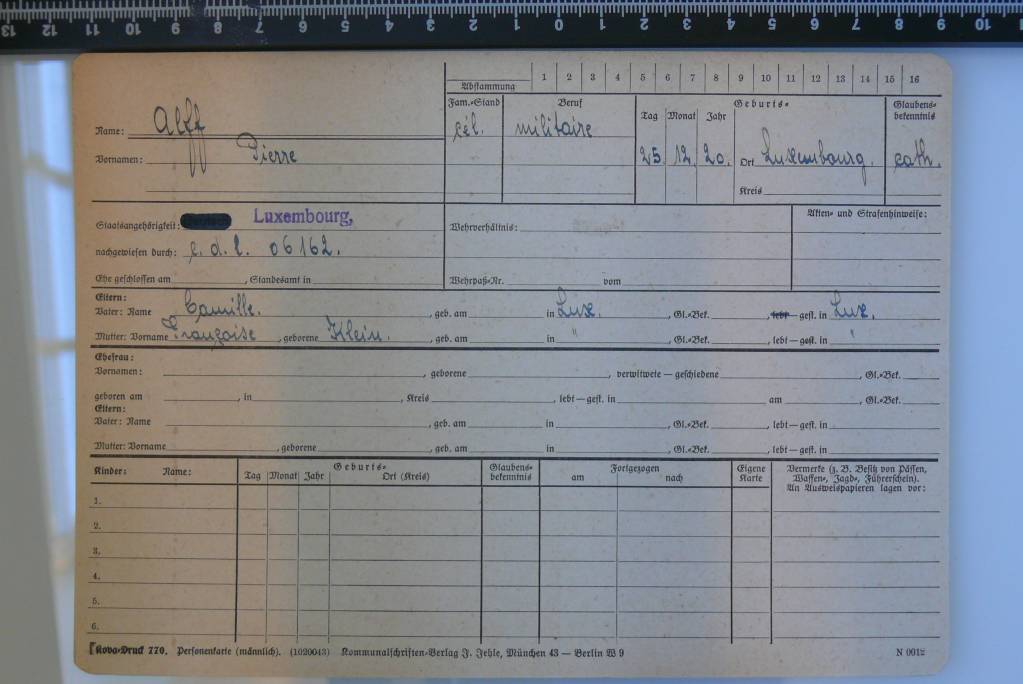 13 12 11 10 9 8 7 6 5 4 3 2 1 0 1 2 3 4 5 6 7 8 9 10
Abstammung 1 2 3 4 5 6 7 8 9 10 11 12 13 14 15 16
Fam.-Stand Beruf Geburts- Glaubens-bekenntnis
Tag Monat Jahr
Name: Alff cél. militaire
Vornamen: Pierre 25 12 20. Ort Luxembourg. cath.
Kreis
Staatsangehörigkeit: Luxembourg, Wehrverhältnis: Akten- und Strafenhinweise:
nachgewiesen durch: c. d. l. 06162.
Ehe geschlossen am , Standesamt in Wehrpaß-Nr. vom
Eltern:
Vater: Name Camille. , geb. am in Lux. , Gl.-Bek. , lebt — gest. in Lux.
Mutter: Vorname Françoise , geborene Klein. , geb. am in " , Gl.-Bek. , lebt — gest. in "
Ehefrau:
Vornamen: , geborene , verwitwete — geschiedene , Gl.-Bek.
geboren am , in , Kreis , lebt — gest. in am , Gl.-Bek.
Eltern:
Vater: Name , geb. am in , Gl.-Bek. , lebt — gest. in
Mutter: Vorname , geborene , geb. am in , Gl.-Bek. , lebt — gest. in
Kinder: Name: Geburts- Glaubens-bekenntnis Fortgezogen Eigene Karte Vermerke (z. B. Besitz von Pässen,
Tag Monat Jahr Ort (Kreis) am nach Waffen-, Jagd-, Führerschein).
An Ausweispapieren lagen vor:
1.
2.
3.
4.
5.
6.
Kova-Druck 770. Personenkarte (männlich). (1020043) Kommunalschriften-Verlag J. Jehle, München 43 — Berlin W 9